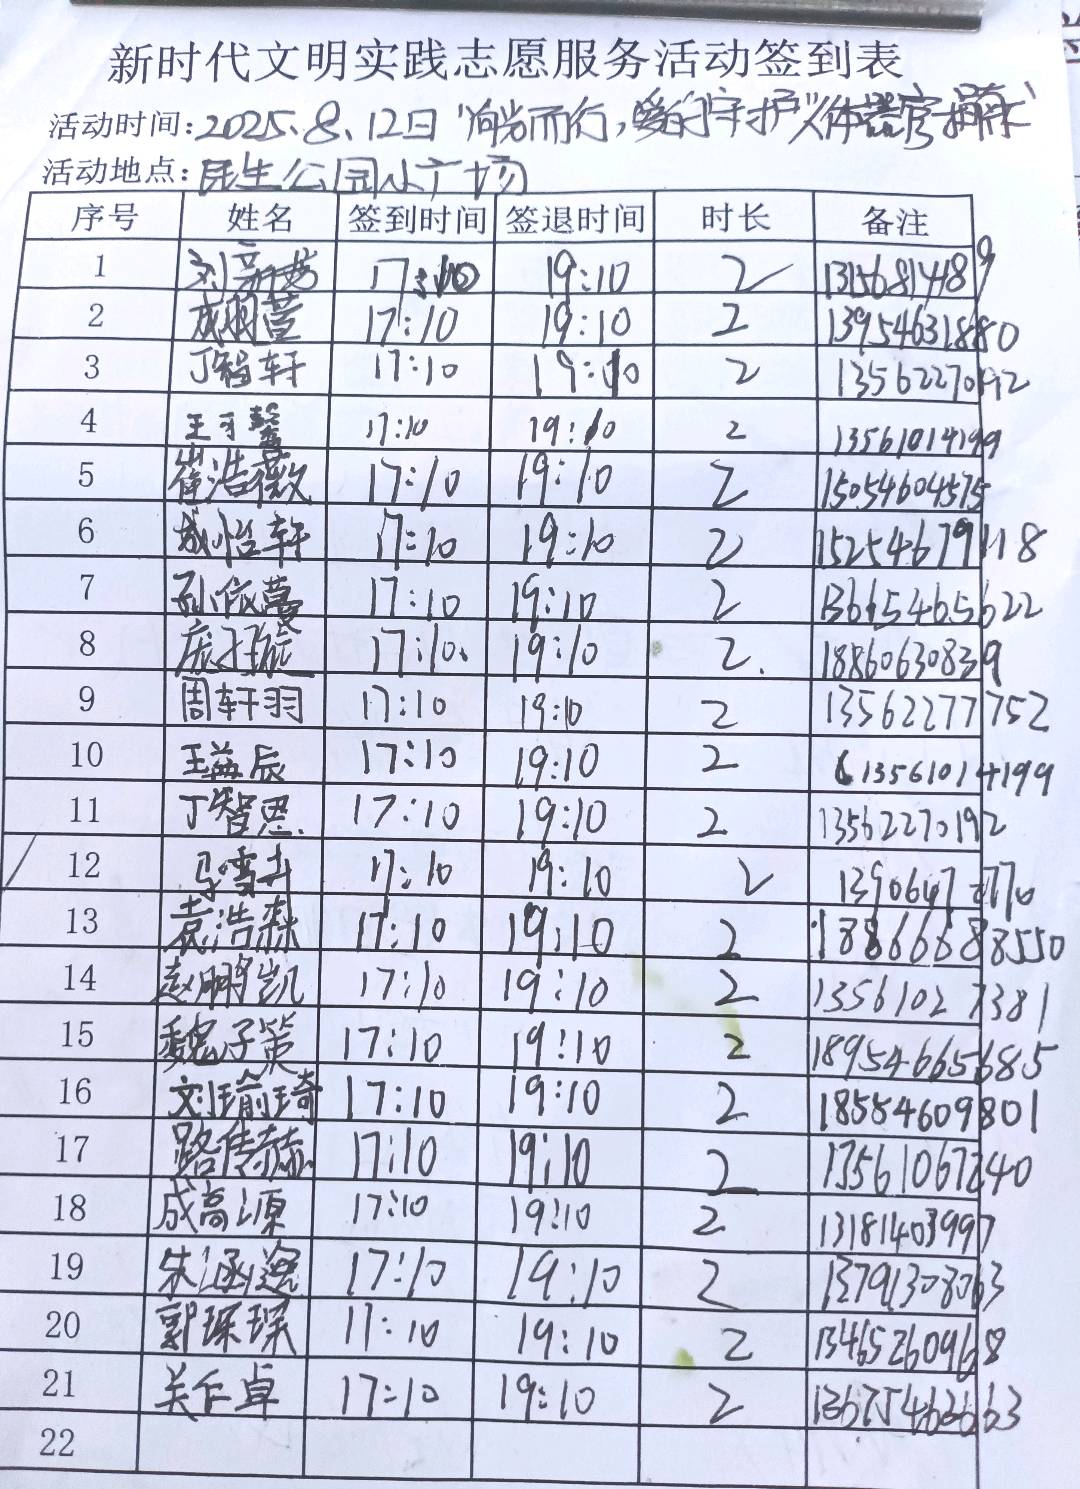 新时代文明实践志愿服务活动签到表
活动时间:2025.8.12日"向光而行,爱的守护"人体器官捐献
活动地点:民生公园水广场
序号 姓名 签到时间 签退时间 时长 备注
1 17:10 19:10 2 13156814189
2 17:10 19:10 2 13954631880
3 丁智轩 17:10 19:10 2 13562270192
4 王子馨 17:10 19:10 2 13561014199
5 崔浩薇 17:10 19:10 2 15054604575
6 成怡轩 17:10 19:10 2 15254679118
7 孙依蔓 17:10 19:10 2 13665465622
8 17:10 19:10 2 18860630839
9 周轩羽 17:10 19:10 2 13562277752
10 王益辰 17:10 19:10 2 13561014199
11 丁智思 17:10 19:10 2 13562270192
12 17:10 19:10 2
13 袁浩森 17:10 19:10 2 18866688550
14 赵鹏凯 17:10 19:10 2 13561027381
15 魏子策 17:10 19:10 2 18954665685
16 刘瑜琦 17:10 19:10 2 18554609801
17 路传赫 17:10 19:10 2 13561067240
18 成高源 17:10 19:10 2 13181403997
19 朱涵逸 17:10 19:10 2 13791308063
20 郭琛琛 17:10 19:10 2 13465260968
21 关仁卓 17:10 19:10 2
22